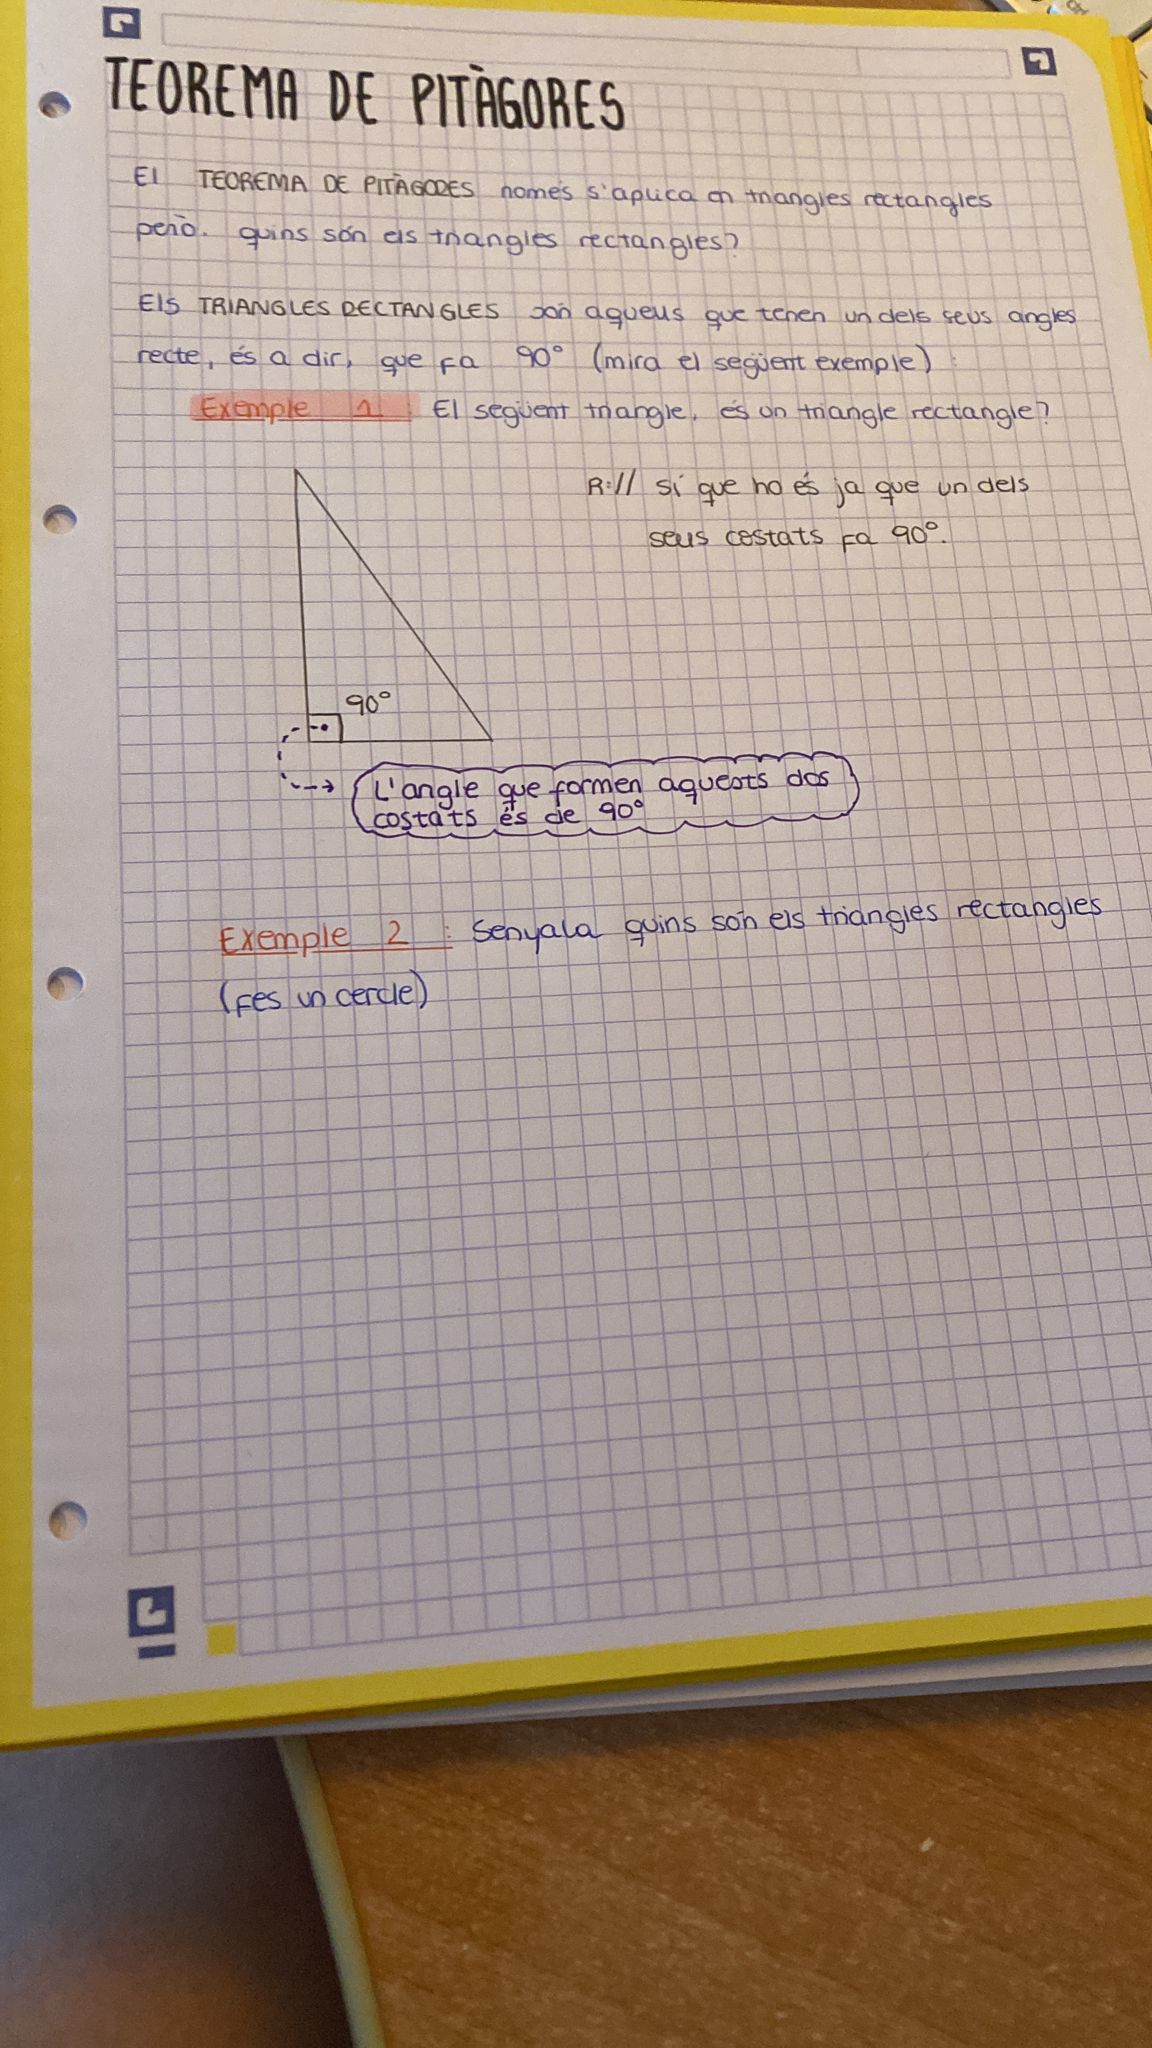 TEOREMA DE PITÀGORES
El TEOREMA DE PITÀGORES només s'aplica en triangles rectangles
però. quins són els triangles rectangles?
Els TRIANGLES RECTANGLES són aquells que tenen un dels seus angles
recte, és a dir, que fa 90° (mira el següent exemple):
Exemple 1: El següent triangle, és un triangle rectangle?
R:// sí que ho és ja que un dels
seus costats fa 90°.
90°
L'angle que formen aquests dos
costats és de 90°
Exemple 2: Senyala quins són els triangles rectangles
(fes un cercle)